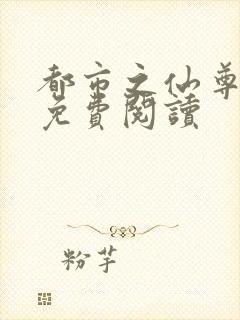 都市之仙尊
免費閱讀
粉芋